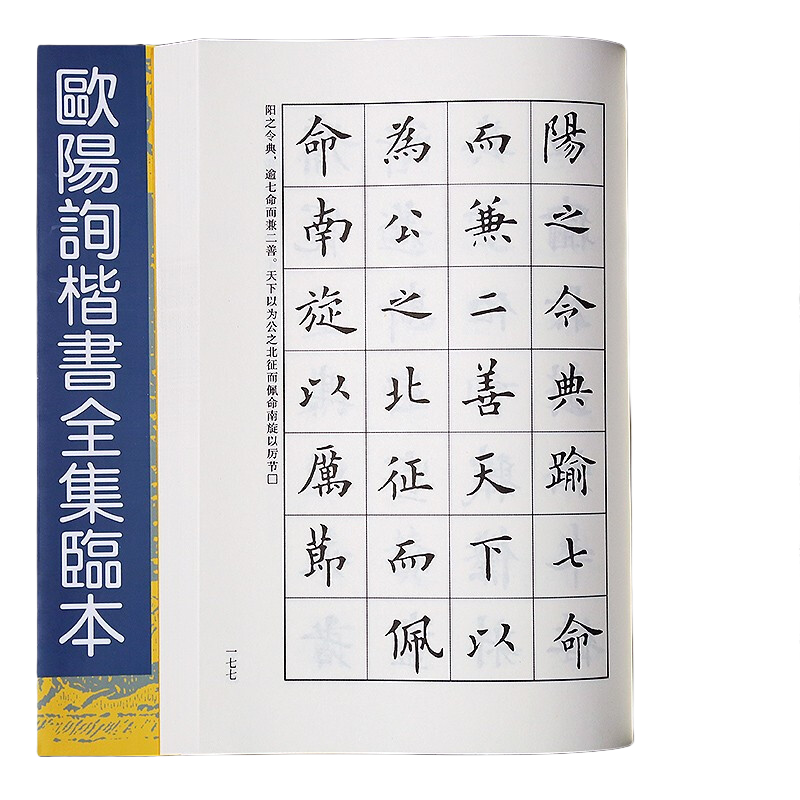 歐陽詢楷書全集臨本
陽之令典踰七命
而兼二善天下以
為公之北征而佩
命南旋以厲節
阳之令典，逾七命而兼二善。天下以为公之北征而佩命南旋以厉节□
一七七